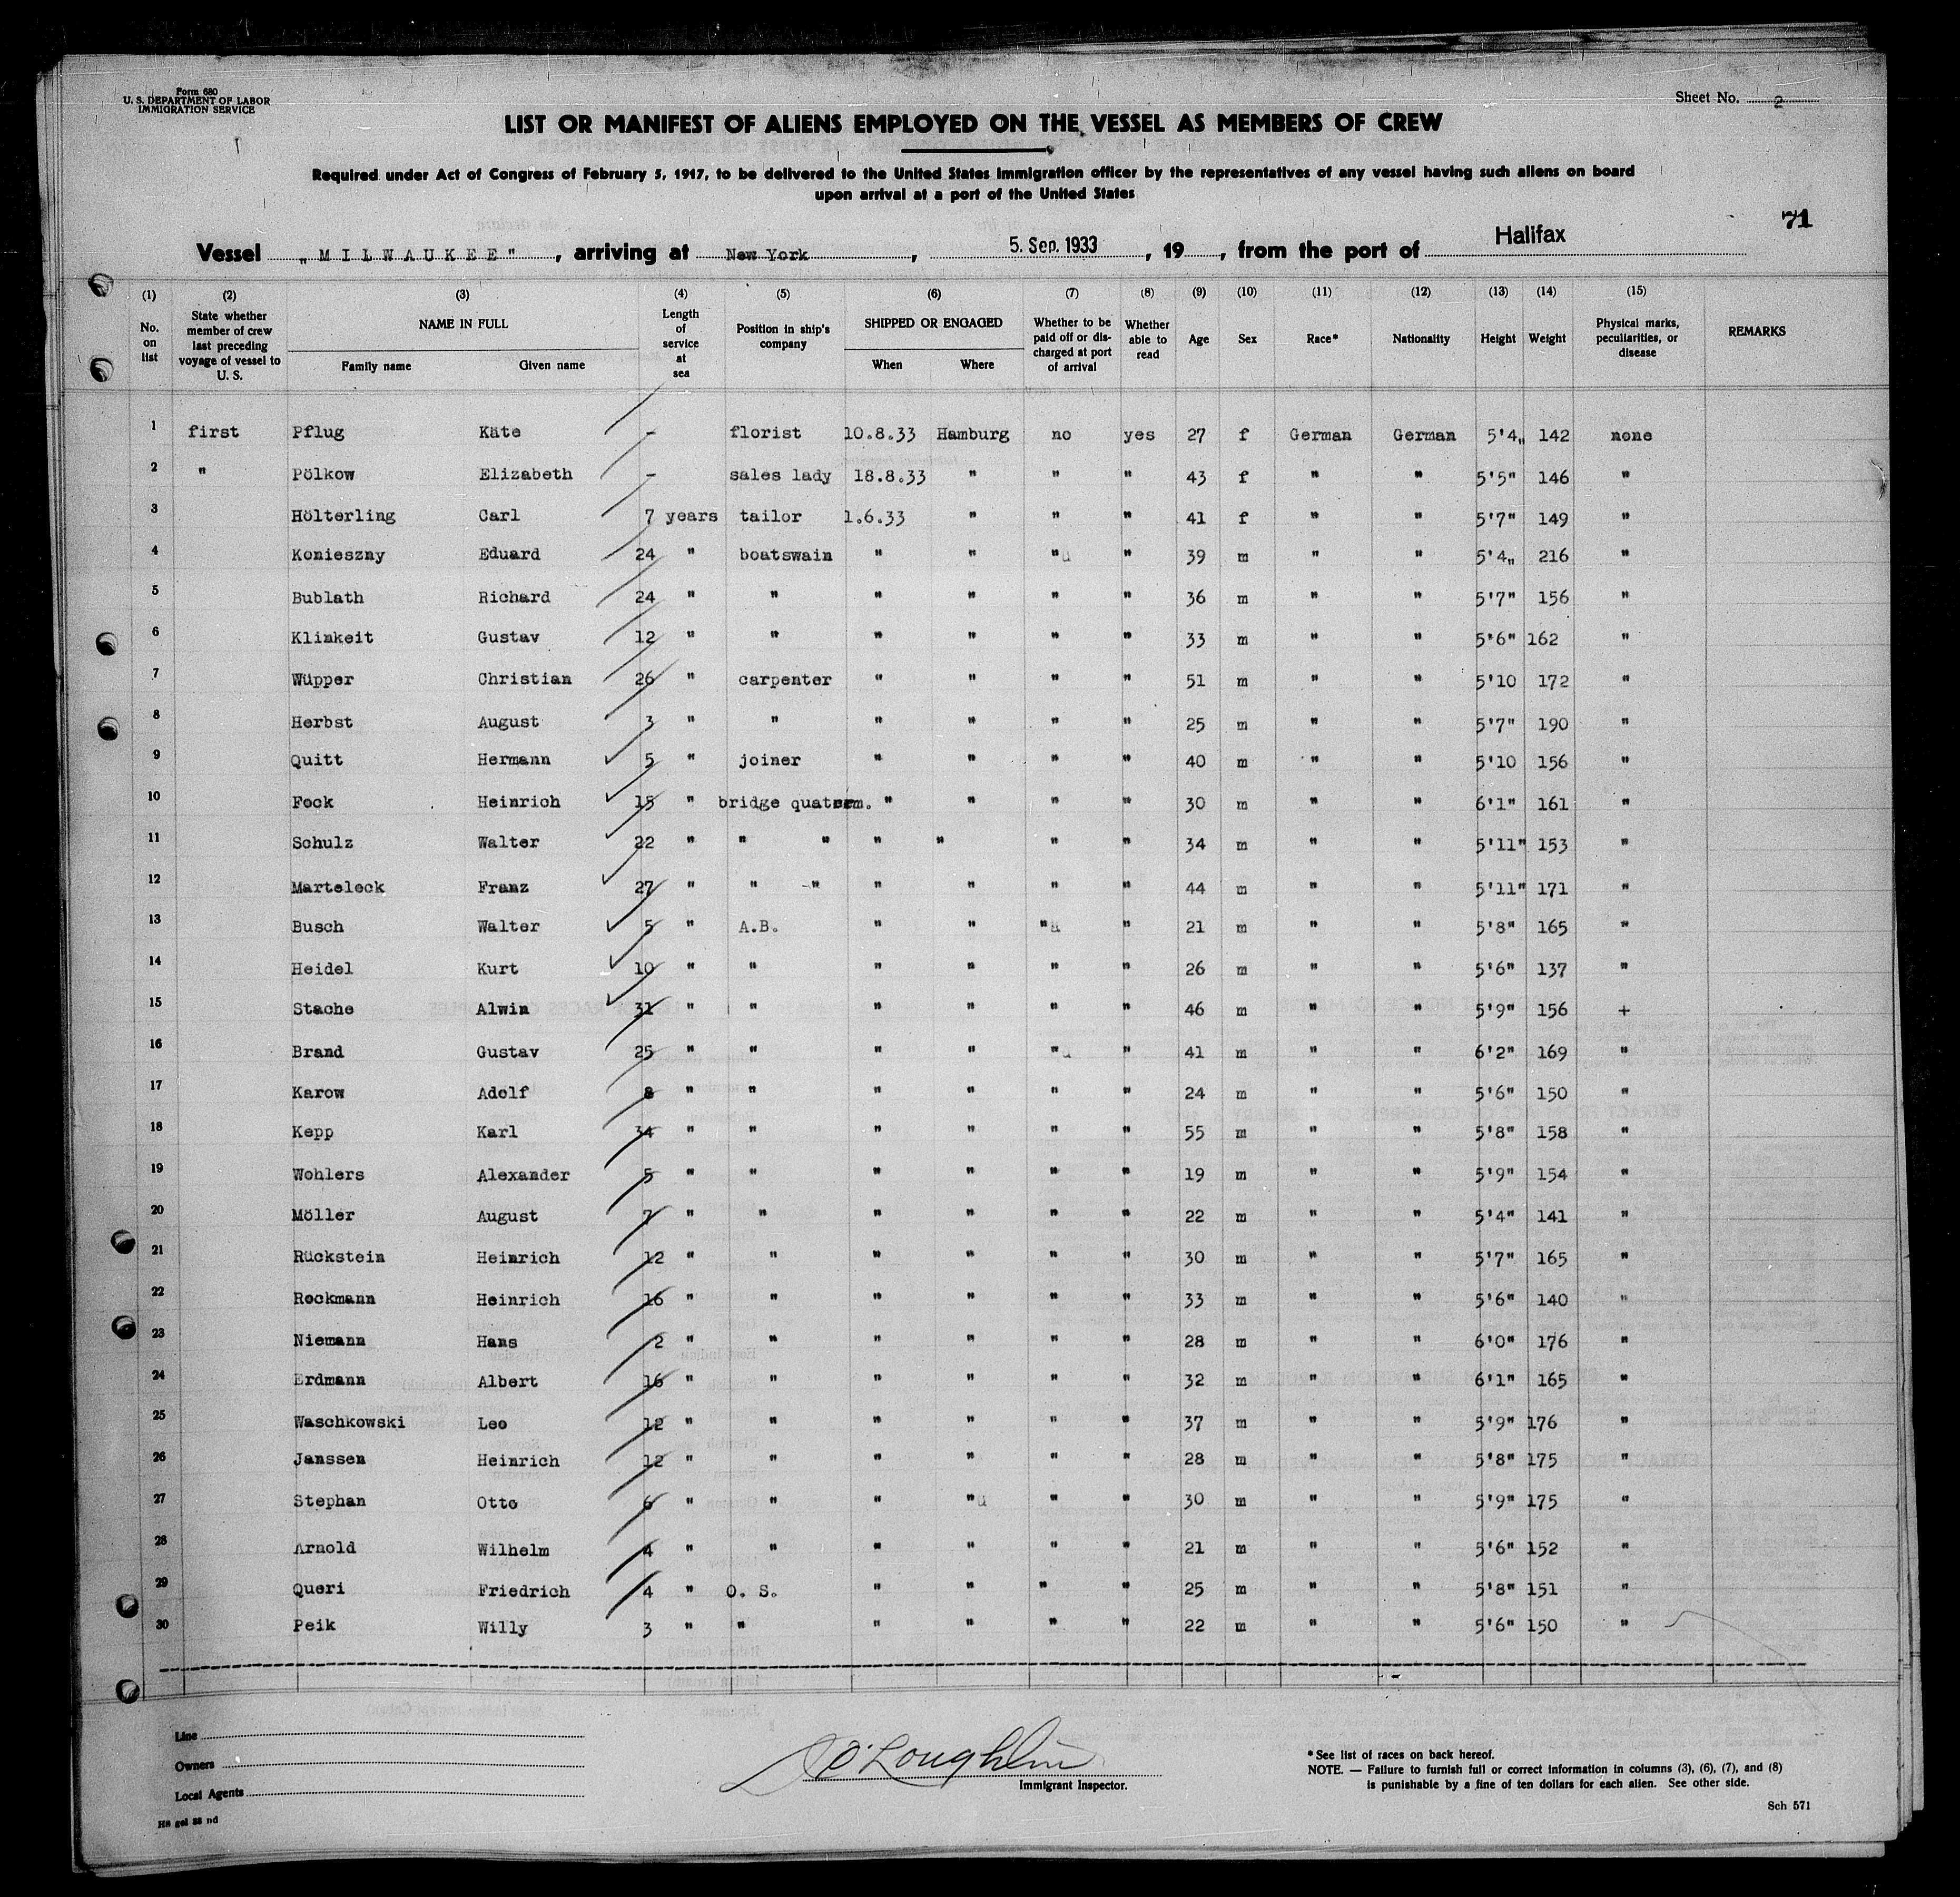 Form 680
U. S. DEPARTMENT OF LABOR
IMMIGRATION SERVICE
Sheet No. 2
LIST OR MANIFEST OF ALIENS EMPLOYED ON THE VESSEL AS MEMBERS OF CREW
Required under Act of Congress of February 5, 1917, to be delivered to the United States Immigration officer by the representatives of any vessel having such aliens on board
upon arrival at a port of the United States
71
Vessel „MILWAUKEE", arriving at New York, 5. Sep. 1933, 19 , from the port of Halifax
(1) (2) (3) (4) (5) (6) (7) (8) (9) (10) (11) (12) (13) (14) (15)
No. on list State whether member of crew last preceding voyage of vessel to U. S. NAME IN FULL Family name Given name Length of service at sea Position in ship's company SHIPPED OR ENGAGED When Where Whether to be paid off or discharged at port of arrival Whether able to read Age Sex Race* Nationality Height Weight Physical marks, peculiarities, or disease REMARKS
1 first Pflug Käte - florist 10.8.33 Hamburg no yes 27 f German German 5'4„ 142 none
2 " Pölkow Elizabeth - sales lady 18.8.33 " " " 43 f " " 5'5" 146 "
3 Hölterling Carl 7 years tailor 1.6.33 " " " 41 f " " 5'7" 149 "
4 Konieszny Eduard 24 " boatswain " " " " 39 m " " 5'4„ 216 "
5 Bublath Richard 24 " " " " " " 36 m " " 5'7" 156 "
6 Klinkeit Gustav 12 " " " " " " 33 m " " 5'6" 162 "
7 Wüpper Christian 26 " carpenter " " " " 51 m " " 5'10 172 "
8 Herbst August 3 " " " " " " 25 m " " 5'7" 190 "
9 Quitt Hermann 5 " joiner " " " " 40 m " " 5'10 156 "
10 Fock Heinrich 15 " bridge " " " " 30 m " " 6'1" 161 "
11 Schulz Walter 22 " " " " " " " 34 m " " 5'11" 153 "
12 Marteleck Franz 27 " " " " " " " 44 m " " 5'11" 171 "
13 Busch Walter 5 " A.B. " " " " 21 m " " 5'8" 165 "
14 Heidel Kurt 10 " " " " " " 26 m " " 5'6" 137 "
15 Stache Alwin 31 " " " " " " 46 m " " 5'9" 156 +
16 Brand Gustav 25 " " " " " " 41 m " " 6'2" 169 "
17 Karow Adolf 8 " " " " " " 24 m " " 5'6" 150 "
18 Kepp Karl 34 " " " " " " 55 m " " 5'8" 158 "
19 Wohlers Alexander 5 " " " " " " 19 m " " 5'9" 154 "
20 Möller August 7 " " " " " " 22 m " " 5'4" 141 "
21 Rückstein Heinrich 12 " " " " " " 30 m " " 5'7" 165 "
22 Rockmann Heinrich 16 " " " " " " 33 m " " 5'6" 140 "
23 Niemann Hans 2 " " " " " " 28 m " " 6'0" 176 "
24 Erdmann Albert 16 " " " " " " 32 m " " 6'1" 165 "
25 Waschkowski Leo 12 " " " " " " 37 m " " 5'9" 176 "
26 Janssen Heinrich 12 " " " " " " 28 m " " 5'8" 175 "
27 Stephan Otto 6 " " " " " " 30 m " " 5'9" 175 "
28 Arnold Wilhelm 4 " " " " " " 21 m " " 5'6" 152 "
29 Queri Friedrich 4 " O. S. " " " " 25 m " " 5'8" 151 "
30 Peik Willy 3 " " " " " " 22 m " " 5'6" 150 "
Line
Owners
Local Agents
O'Loughlin
Immigrant Inspector.
*See list of races on back hereof.
NOTE. — Failure to furnish full or correct information in columns (3), (6), (7), and (8)
is punishable by a fine of ten dollars for each alien. See other side.
Sch 571